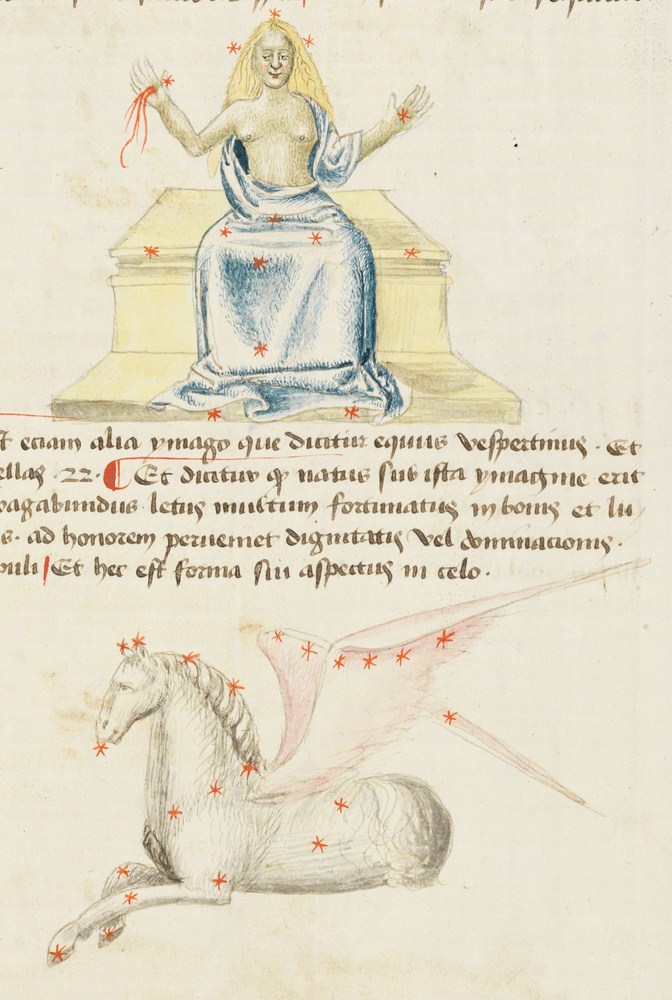 Est eciam alia ymago que dicitur equus vespertinus · Et
ellas · 22 · ¶ Et dicitur ꝙ natus sub ista ymagine erit
vagabundus letus multum fortunatus in bonis et lu
s · ad honorem perueniet dignitatis vel dominacionis ·
puli / Et hec est forma siu aspectus in celo ·